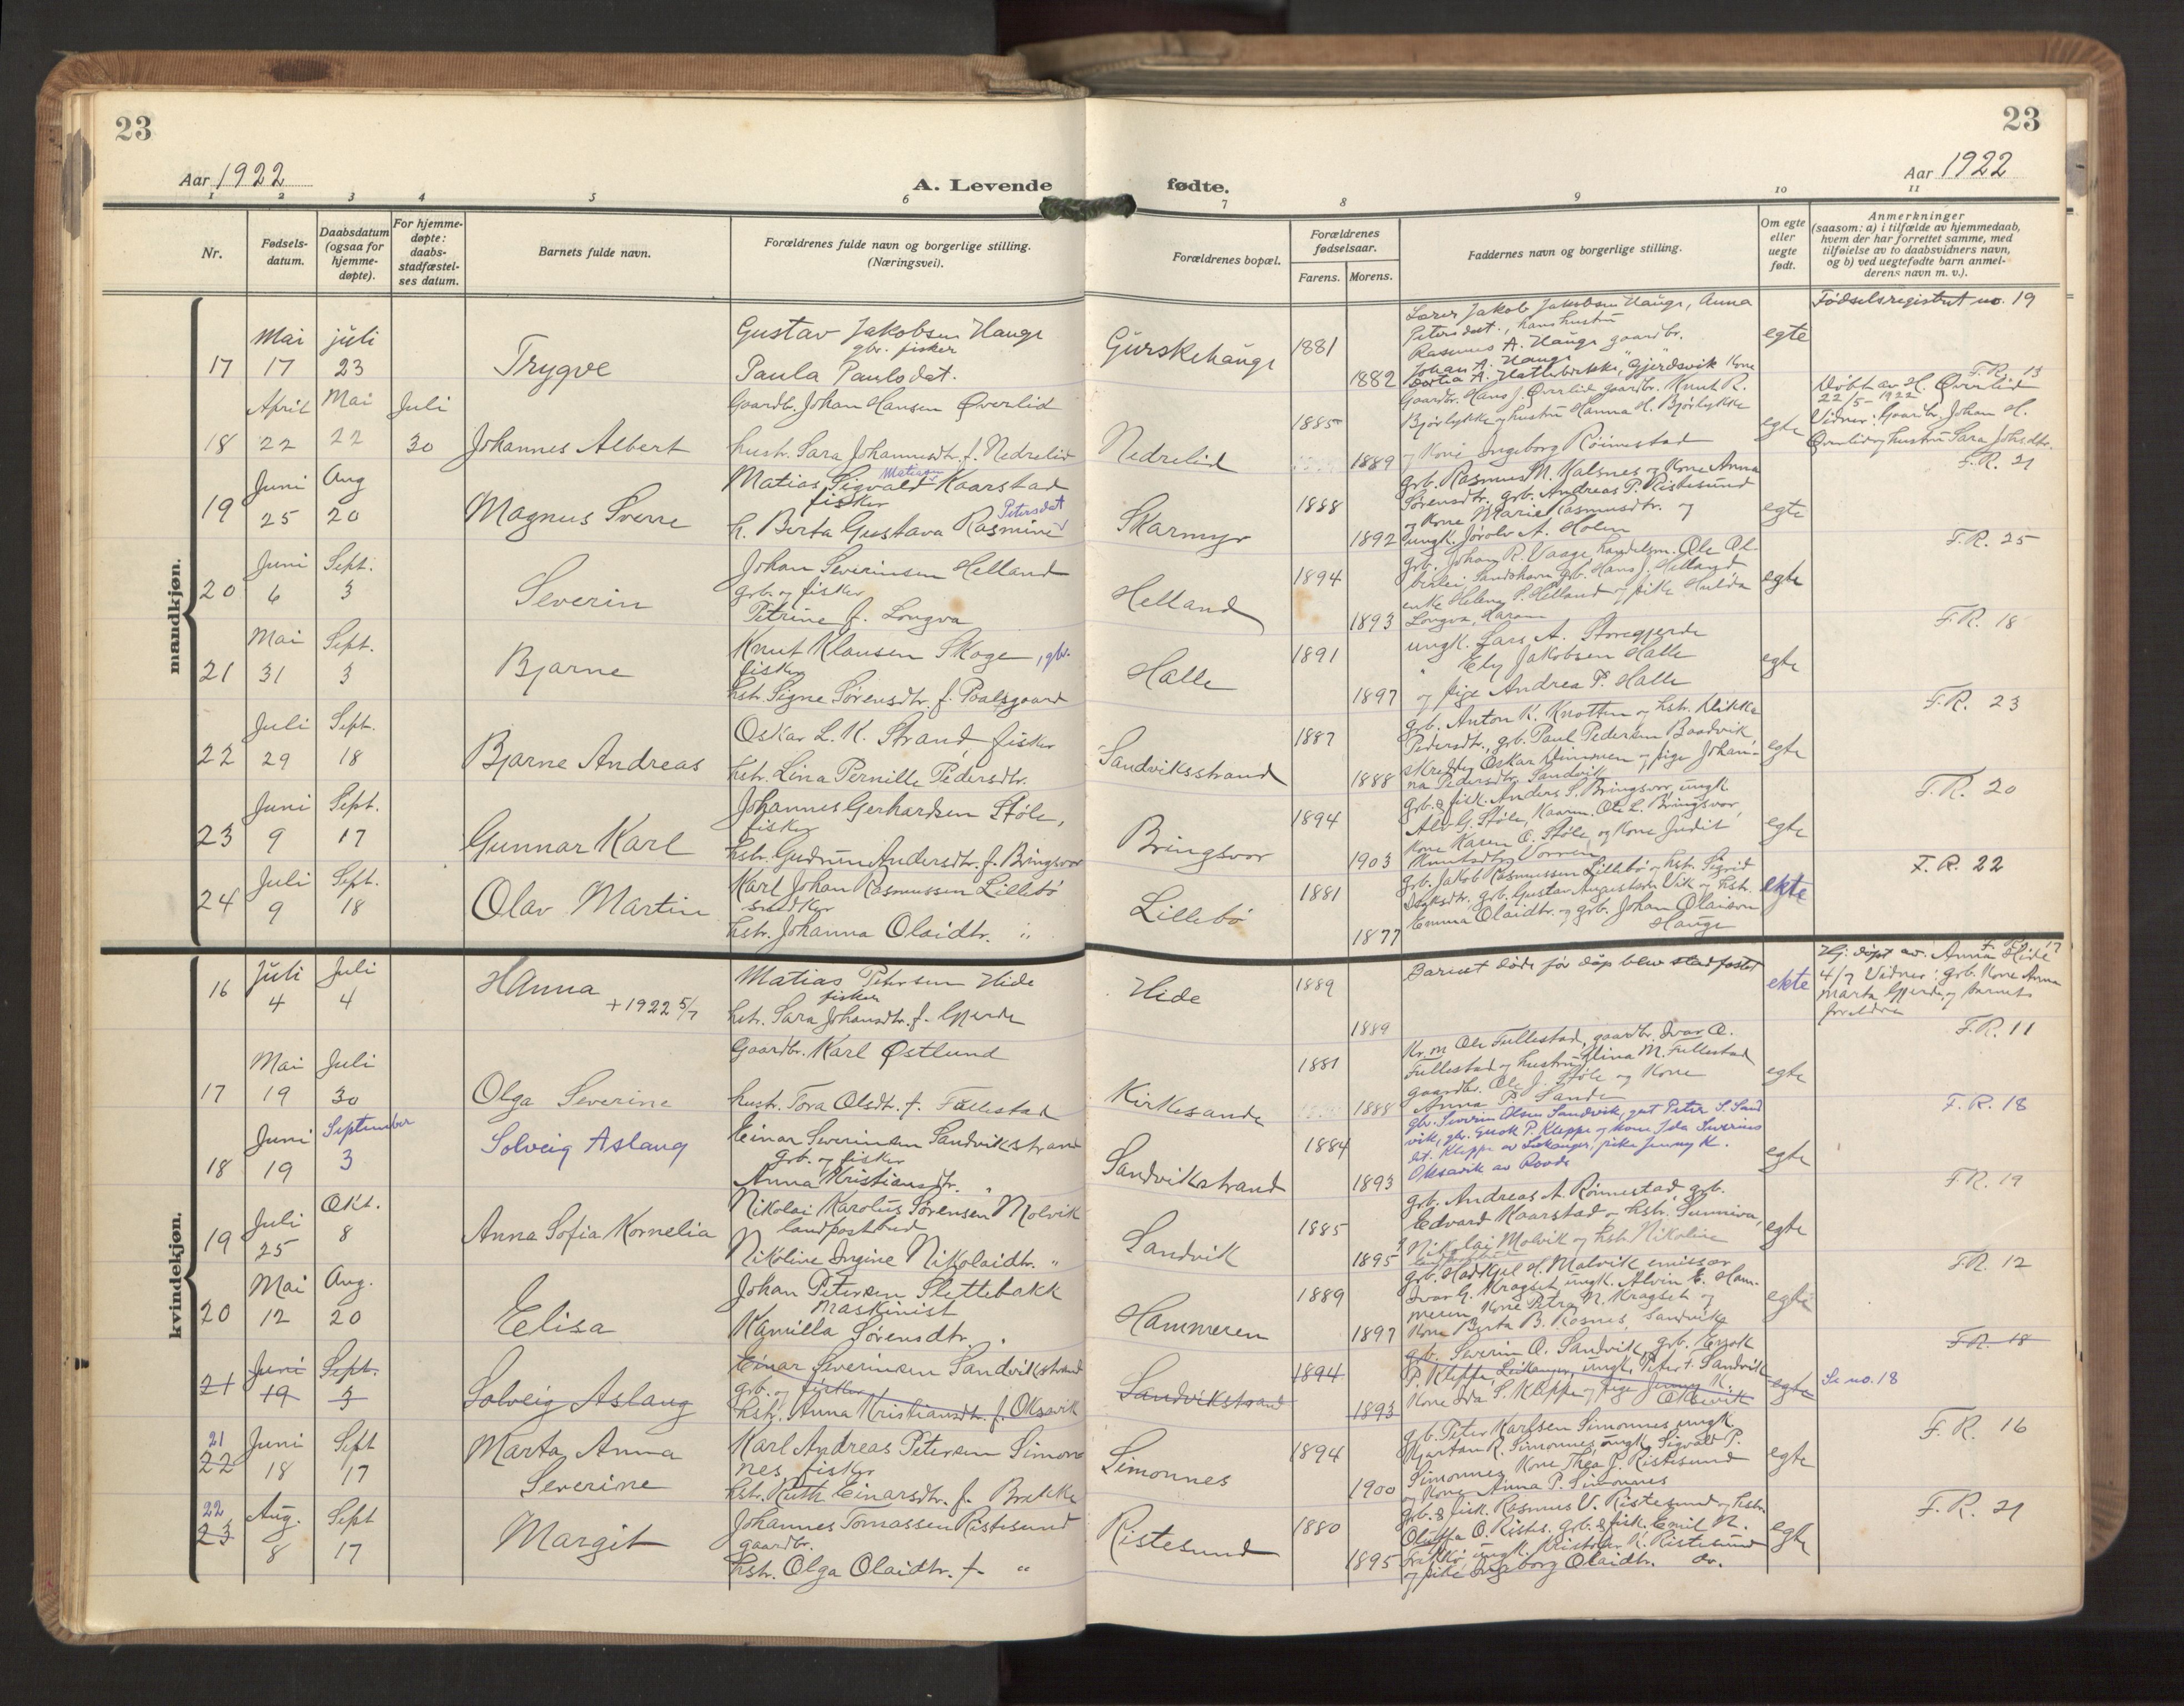 23
23
Aar 1922
A. Levende
fødte.
Aar 1922
1 2 3 4 5 6 7 8 9 10 11
Nr.
Fødsels-
datum.
Daabsdatum
(ogsaa for
hjemme-
døpte).
For hjemme-
døpte:
daabs-
stadfæstel-
ses datum.
Barnets fulde navn.
Forældrenes fulde navn og borgerlige stilling.
(Næringsvei).
Forældrenes bopæl.
Forældrenes
fødselsaar.
Farens. Morens.
Faddernes navn og borgerlige stilling.
Om egte
eller
uegte
født.
Anmerkninger
(saasom: a) i tilfælde av hjemmedaab,
hvem der har forrettet samme, med
tilføielse av to daabsvidners navn,
og b) ved uegtefødte barn anmel-
derens navn m. v.).
mandkjøn.
17
Mai
17
juli
23
Trygve
Gustav Jakobsen Hauge
gbr. fisker
Paula Paulsdat.
Gurskehauge
1881
1882
Lærer Jakob Jakobsen Hauge, Anna
Petersdat., hans hustru
Rasmus A. Hauge gaardbr.
Johan A. Hauge
egte
Fødselsregistret no. 19
18
April
22
Mai
22
Juli
30
Johannes Albert
Gaardb. Johan Hansen Øverlid
hustr. Sara Johannesdtr. f. Nedrelid
Nedrelid
1885
1889
Gaardbr. Hans J. Øverlid gaardbr. Knut R.
Bjørlykke og hustru Hanna H. Bjørlykke
og Kone Ingeborg Røimestad
egte
F.R. 13
Døbt av H. Øverlid
22/5 - 1922
Vidner: Gaardbr. Johan H.
Øverlid og hustru Sara Johsdtr.
19
Juni
25
Aug
20
Magnus Sverre
Matias Sigvald Matiasen Kaarstad
fisker
h. Berta Gustava Rasmine Petersdat
Skarmyr
1888
1892
grb. Rasmus M. Kalsnes og Kone Anna
Sørensdtr. grb. Andreas P. Ristesund
og Kone Marie Rasmusdtr. og
ungk. Jørolv A. Holen
egte
F.R. 21
20
Juni
6
Sept.
3
Severin
Johan Severinsen Helland
grb. og fisker
Petrine f. Longva
Helland
1894
1893
grb. Johan R. Vaage, handelsm. Ole
Sandshavn grb. Hans J. Helland
enke Helene P. Helland og pike Hulda
Longva, Haram
egte
F.R. 25
21
Mai
31
Sept.
3
Bjarne
Knut Klausen Skoge, gbr.
fisker
hstr. Signe Sørensdtr. f. Poalsgaard
Halle
1891
1897
ungk. Lars A. Storegjerde
" Ely Jakobsen Halle
og pige Andrea P. Halle
egte
F.R. 18
22
Juli
29
Sept.
18
Bjarne Andreas
Oskar L. K. Strand, fisker
hstr. Lina Pernille Pedersdtr.
Sandviksstrand
1887
1888
grb. Anton K. Knotten og hstr. Rikke
Pedersdtr., grb. Paul Pedersen Baadvik,
skredder Oskar og pige Johan-
na Pedersdtr. Sandvik
egte
F.R. 23
23
Juni
9
Sept.
17
Gunnar Karl
Johannes Gerhardsen Støle,
fisker
hstr. Gudrun Andersdtr. f. Bringsvor
Bringsvor
1894
1903
grb. & fisk. Anders S. Bringsvor, ungk
Alv G. Støle, Kaarm. Ole L. Bringsvor,
Kone Karen O. Støle og Kone Judit
Knutsdtr. Vorren
egte
F.R. 20
24
Juli
9
Sept.
18
Olav Martin
Karl Johan Rasmussen Lillebø
snedker
hstr. Johanna Olaidtr. "
Lillebø
1881
1877
grb. Jakob Rasmussen Lillebø og hstr. Sigrid
grb. Gustav Augustsen Vik og hstr.
Emma Olaidtr. og grb. Johan Olaison
Hauge
ekte
F.R. 22
kvindekjøn.
16
Juli
4
Juli
4
Hanna
+ 1922 5/7
Matias Petersen Hide
fisker
hstr. Sara Johansdtr. f. Gjerde
Hide
1889
1889
Barnet døde før dåp blev stadfæstet
ekte
F.R. 17
Hj. døpt av. Anna Hide
4/7 Vidner: grb. Kone Anna
Marta Gjerde og barnets
foreldre
17
Mai
19
Juli
30
Olga Severine
Gaardbr. Karl Østlund
hustr. Tora Olsdtr. f. Fullestad
Kirkesande
1881
1888
Kr.m Ole Fullestad, gaardbr. Ivar O.
Fullestad og hustru Elina M. Fullestad
gaardbr. Ole J. Støle og Kone
Anna P. Sande
egte
F.R. 11
18
Juni
19
September
3
Solveig Aslaug
Einar Severinsen Sandvikstrand
grb. og fisker
Anna Kristiansdtr. "
Sandvikstrand
1884
1893
gbr. Severin Olsen Sandvik, gut Peter S. Sand
vik, gbr. Enok P. Kleppe og kone Ida Severins
dt. Kleppe av Leikanger, pike Jenny K.
Oksavik av Rovde
egte
F.R. 18
19
Juli
25
Okt.
8
Anna Sofia Kornelia
Nikolai Karolus Sørensen Molvik
landpostbud
Nikoline Ingine Nikolaidtr. "
Sandvik
1885
1895
grb. Andreas A. Rønnestad, grb.
Edvard Kaarstad og hstr. Sunniva,
Nikolai Molvik og hstr Nikoline
egte
F.R. 19
20
Mai
12
Aug.
20
Elisa
Johan Petersen Slettebakk
maskinist
Kamilla Sørensdtr. "
Hammeren
1889
1897
grb. Hadkjel H. Molvik emissær
Ivar G. Kragset ungk. Alvin E. Ham-
meren, Kone Petra N. Kragset og
Kone Berta B. Kosnes, Sandvik
egte
F.R. 12
21
Juni
19
Sept.
3
Solveig Aslaug
Einar Severinsen Sandvikstrand
grb. og fisker
hstr. Anna Kristiansdtr. f. Oksavik
Sandvikstrand
1894
1893
grb. Severin O. Sandvik, grb. Enok
P. Kleppe, Leikanger, ungk. Peter S. Sandvik
Kone Ida S. Kleppe og pige Jenny K.
Oksavik
egte
F.R. 18
Se no. 18
21
22
Juni
18
Sept
17
Marta Anna
Severine
Karl Andreas Petersen Simon
nes, fisker
hstr. Ruth Einarsdtr. f. Brekke
Simonnes
1894
1900
grb. Peter Karlsen Simonnes, ungk.
Kjartan R. Simonnes, ungk. Sigvald P.
Simonnes, Kone Thea J. Ristesund
og Kone Anna P. Simonnes
egte
F.R. 16
22
23
Aug.
8
Sept
17
Margit
Johannes Tomassen Ristesund
gaardbr.
hstr. Olga Olaidtr. f. "
Ristesund
1880
1895
grb. & fisk. Rasmus V. Ristesund og hstr.
Oluffa O. Ristes. grb. & fisk. Emil N.
ungk. Kristofer K. Ristesund
og pike Ingeborg Olaidtr. do.
egte
F.R. 21